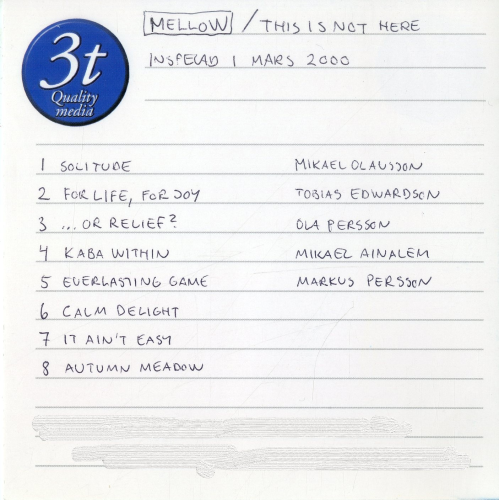 3t
Quality
media
MELLOW / THIS IS NOT HERE
INSPELAD 1 MARS 2000
1 SOLITUDE MIKAEL OLAUSSON
2 FOR LIFE, FOR JOY TOBIAS EDWARDSON
3 ... OR RELIEF? OLA PERSSON
4 KABA WITHIN MIKAEL AINALEM
5 EVERLASTING GAME MARKUS PERSSON
6 CALM DELIGHT
7 IT AIN'T EASY
8 AUTUMN MEADOW